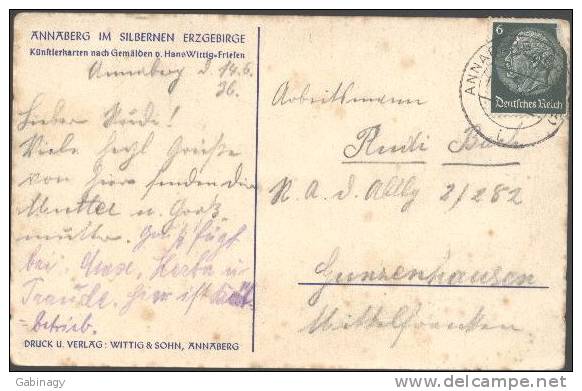 ANNABERG IM SILBERNEN ERZGEBIRGE
Künstlerkarten nach Gemälden v. Hans Wittig-Friesen
Annaberg d. 14.6.
36.
Lieber Rudi!
Viele herzl Grüße
von hier senden dir
Mutter u. Groß
mutter.
bei. Herta u
Traude. hier ist
betrieb.
DRUCK U. VERLAG: WITTIG & SOHN, ANNABERG
6
Deutsches Reich
ANNA
Arbeitsmann
Rudi
R. A. d. Abtlg 2/282
Gunzenhausen
Mittelfranken
© Gabinagy
http://www.delcampe.net